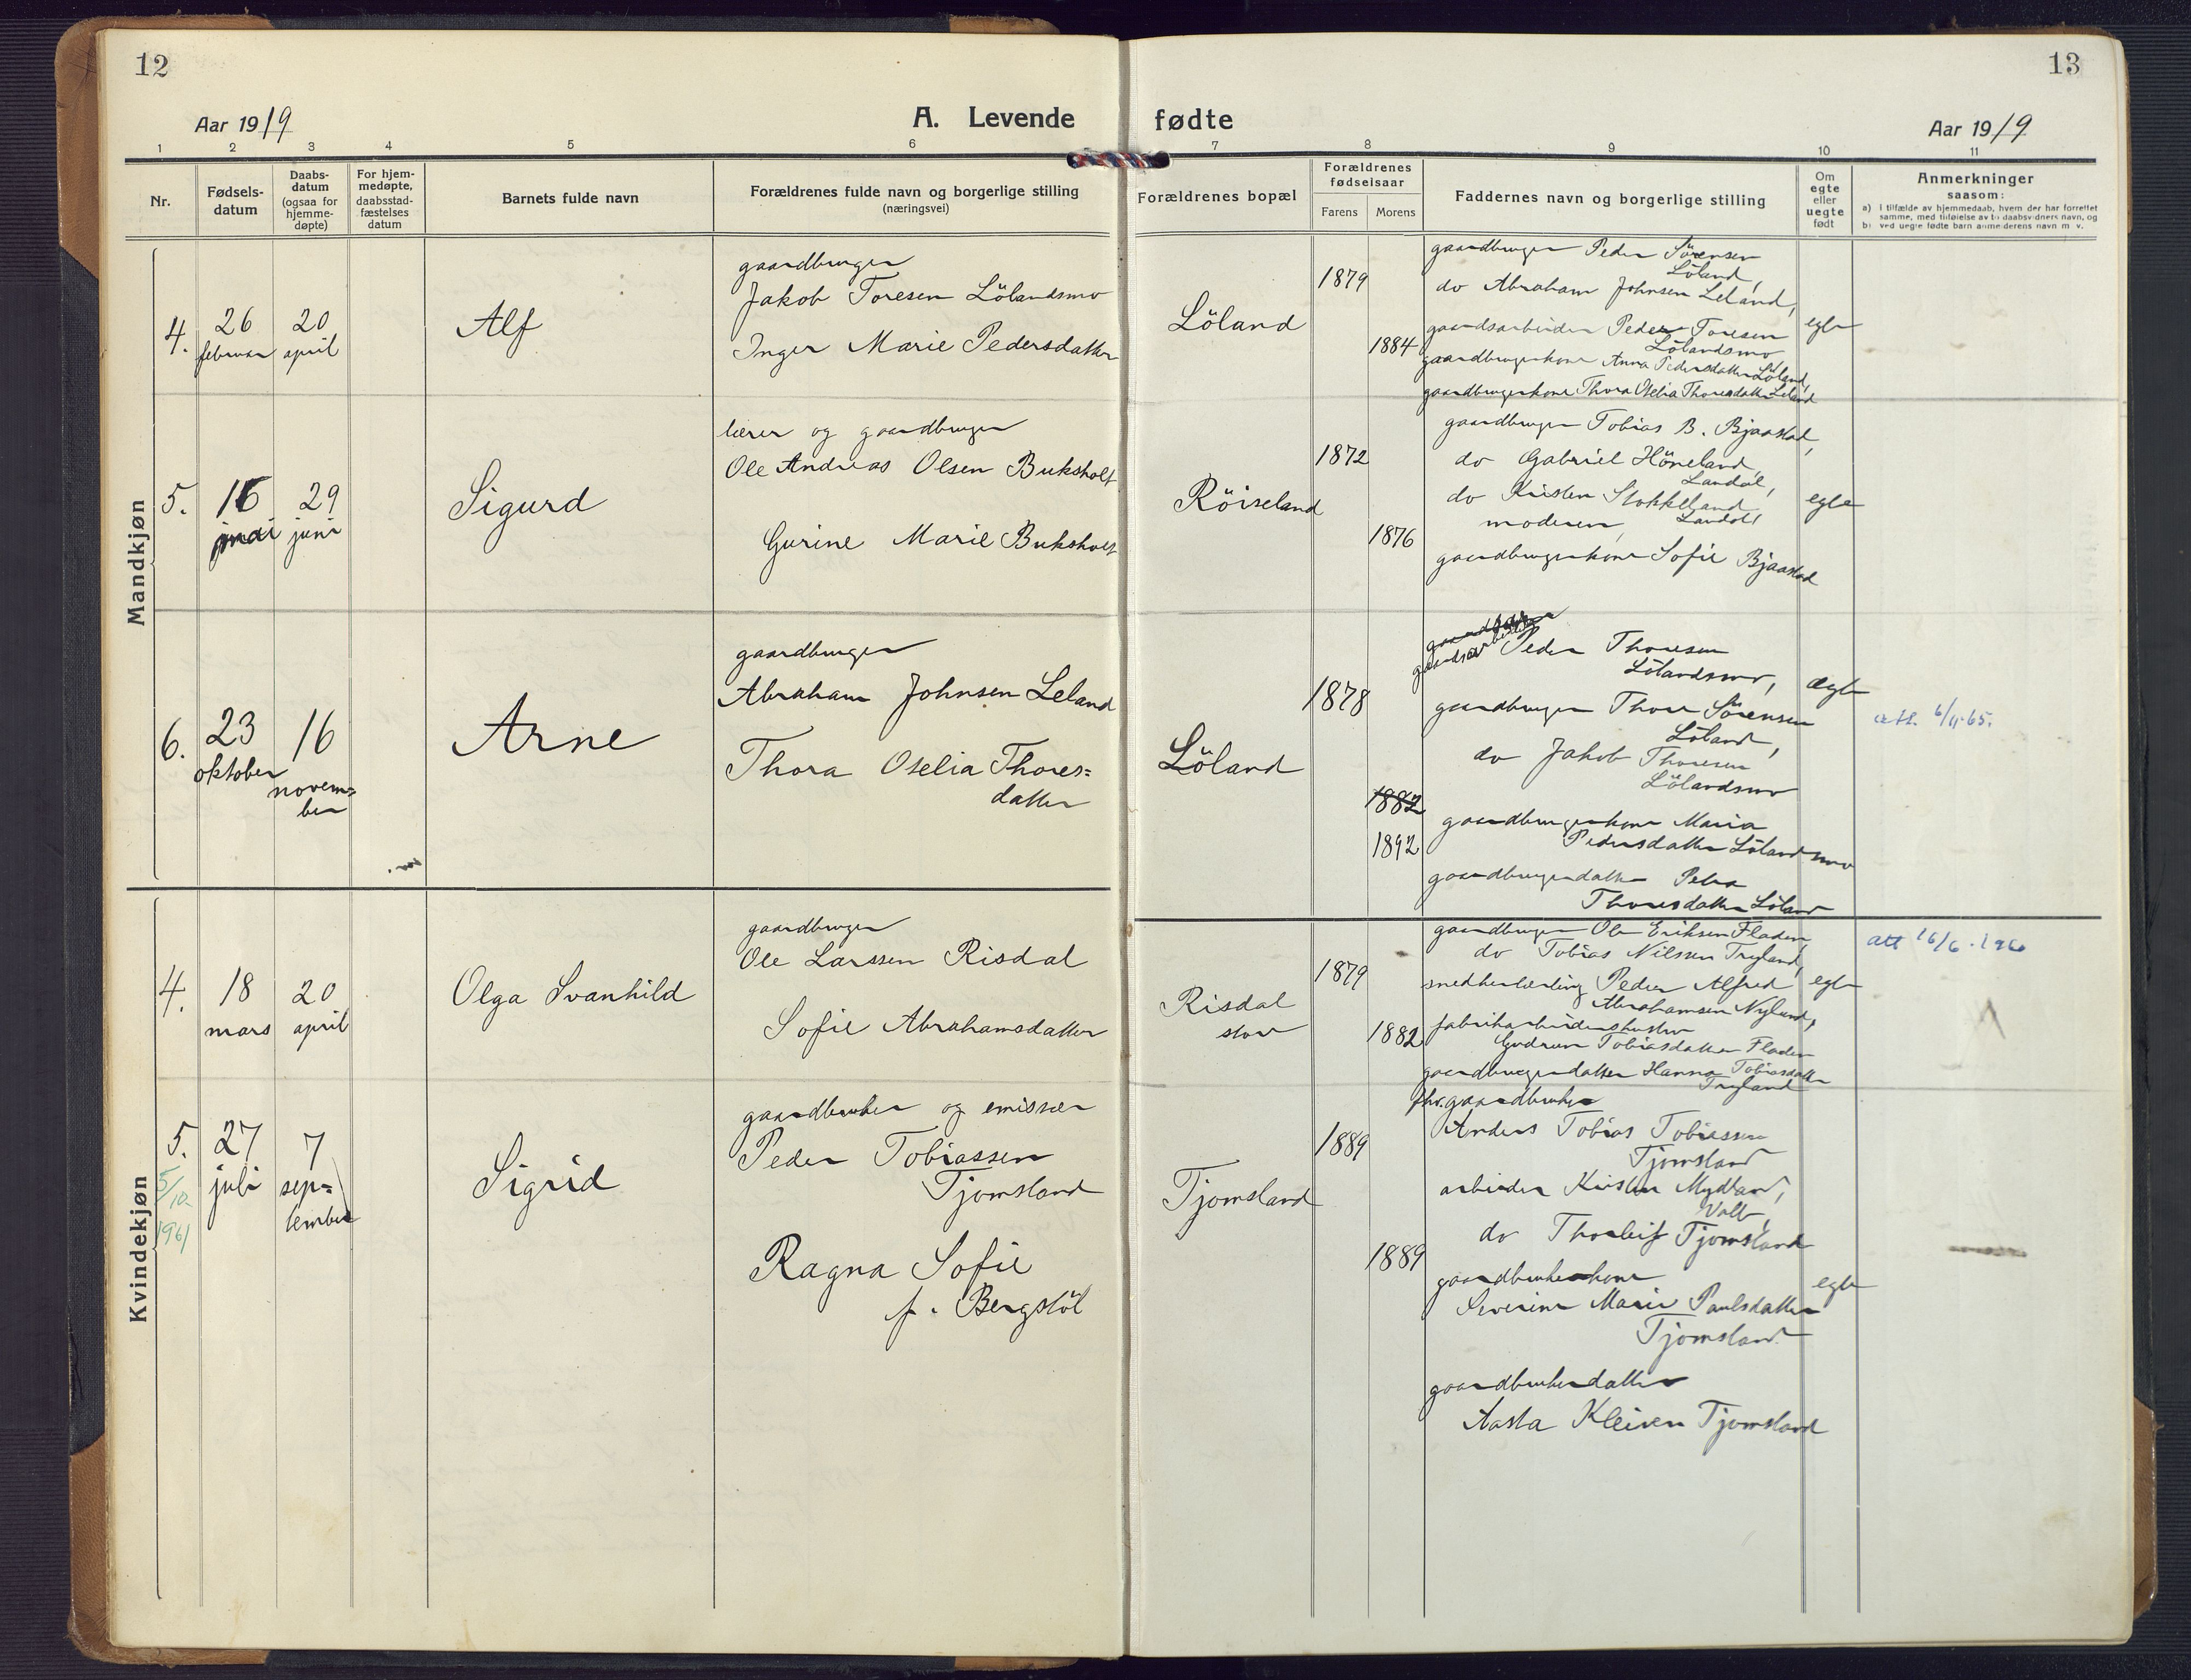 12
Aar 1919
A. Levende
1 2 3 4 5 6
Nr.
Fødsels-
datum
Daabs-
datum
(ogsaa for
hjemme-
døpte)
For hjem-
medøpte,
daabsstad-
fæstelses
datum
Barnets fulde navn
Forældrenes fulde navn og borgerlige stilling
(næringsvei)
Mandkjøn
4.
26
februar
20
april
Alf
gaardbruger
Jakob Toresen Lölandsmo
Inger Marie Pedersdatter
5.
16
mai
29
juni
Sigurd
lærer og gaardbruger
Ole Andreas Olsen Buksholt
Gurine Marie Buksholt
6.
23
oktober
16
novem=
ber
Arne
gaardbruger
Abraham Johnsen Leland
Thora Oselia Thores=
datter
Kvindekjøn
4.
18
mars
20
april
Olga Svanhild
gaardbruger
Ole Larssen Risdal
Sofie Abrahamsdatter
5.
5/10.
1961
27
juli
7
sep=
tember
Sigrid
gaardbruker og emissær
Peder Tobiassen
Tjomsland
Ragna Sofie
f. Bergstöl
13
fødte
Aar 1919
7 8 9 10 11
Forældrenes bopæl
Forældrenes
fødselsaar
Farens Morens
Faddernes navn og borgerlige stilling
Om
egte
eller
uegte
født
Anmerkninger
saasom:
a) i tilfælde av hjemmedaab, hvem der har forrettet
samme, med tilføielse av to daabsvidners navn, og
b) ved uegte fødte barn anmelderens navn m. v.
Löland
1879
1884
gaardbruger Peder Sörensen
Löland,
do Abraham Johnsen Leland,
gaardsarbeider Peder Toresen
Lölandsmo
gaardbrugerkone Anna Pedersdatter Löland,
gaardbrugerkone Thora Oselia Thoresdatter Leland
egte
Röiseland
1872
1876
gaardbruger Tobias B. Bjaastad,
do Gabriel Höneland,
Landal,
do Kristen Stokkeland
Landal,
moderen,
gaardbrugerkone Sofie Bjaastad
egte
Löland
1878
1882
1892
gaardsarbeider Peder Thoresen
Lölandsmo,
gaardbruger Thore Sörensen
Löland,
do Jakob Thoresen
Lölandsmo
gaardbrugerkone Maria
Pedersdatter Lölandsmo
gaardbrugerdatter Petra
Thoresdatter Löland
ægte
att. 6/11.65.
Risdal
stor
1879
1882
gaardbruger Ole Eriksen Fladen
do Tobias Nilsen Tryland,
snedkerlærling Peder Alfred
Abrahamsen Nyland,
fabrikarbeidershustru
Gudrun Tobiasdatter Fladen
gaardbrugerdatter Hanna Tobiasdatter
Tryland
egte
att 16/6.196
Tjomsland
1889
1889
fhv. gaardbruker
Anders Tobias Tobiassen
Tjomsland
arbeider Kristen Mydland,
Voll,
do Thorleif Tjomsland
gaardbrukerkone
Severine Marie Paulsdatter
Tjomsland
gaardbrukerdatter
Aasta Kleiven Tjomsland
egte